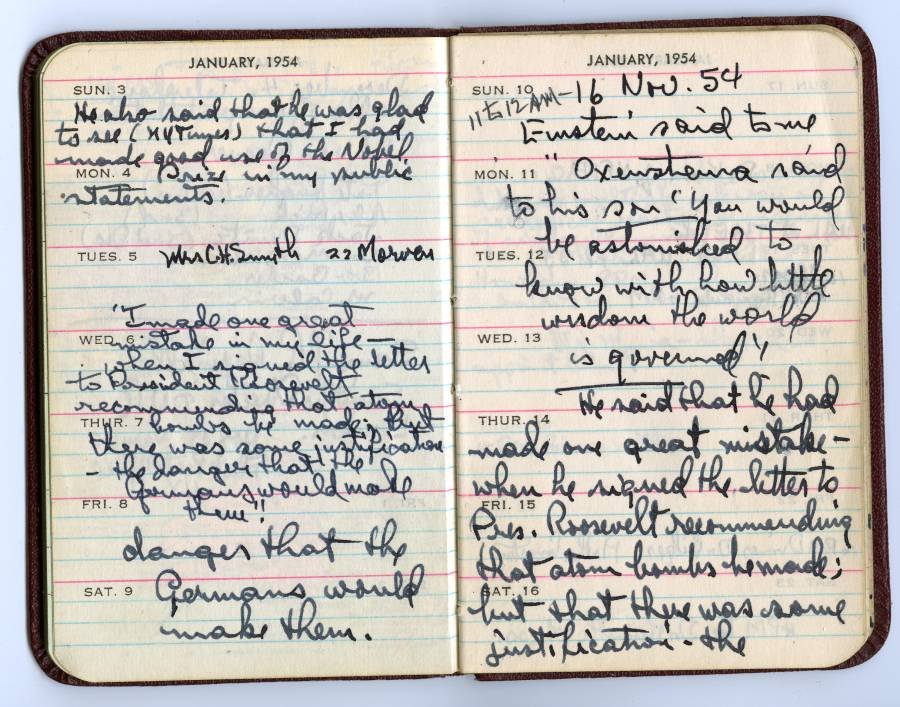 JANUARY, 1954
SUN. 3
He also said that he was glad
to see (NYTimes) that I had
made good use of the Nobel
MON. 4 Prize in my public
statements.
TUES. 5 Mrs C.H. Smith 22 Morven
"I made one great
WED. 6 mistake in my life—
when I signed the letter
to President Roosevelt
recommending that atom
THUR. 7 bombs be made; but
there was some justification
- the danger that the
Germans would make
FRI. 8 them"!
danger that the
SAT. 9 Germans would
make them.
JANUARY, 1954
SUN. 10 11 to 12 AM - 16 Nov. 54
Einstein said to me
MON. 11 "Oxenstierna said
to his son "You would
be astonished to
TUES. 12
know with how little
wisdom the world
WED. 13
is governed"!
He said that he had
THUR. 14
made one great mistake -
when he signed the letter to
FRI. 15
Pres. Roosevelt recommending
that atom bombs be made;
SAT. 16
but that there was some
justification - the